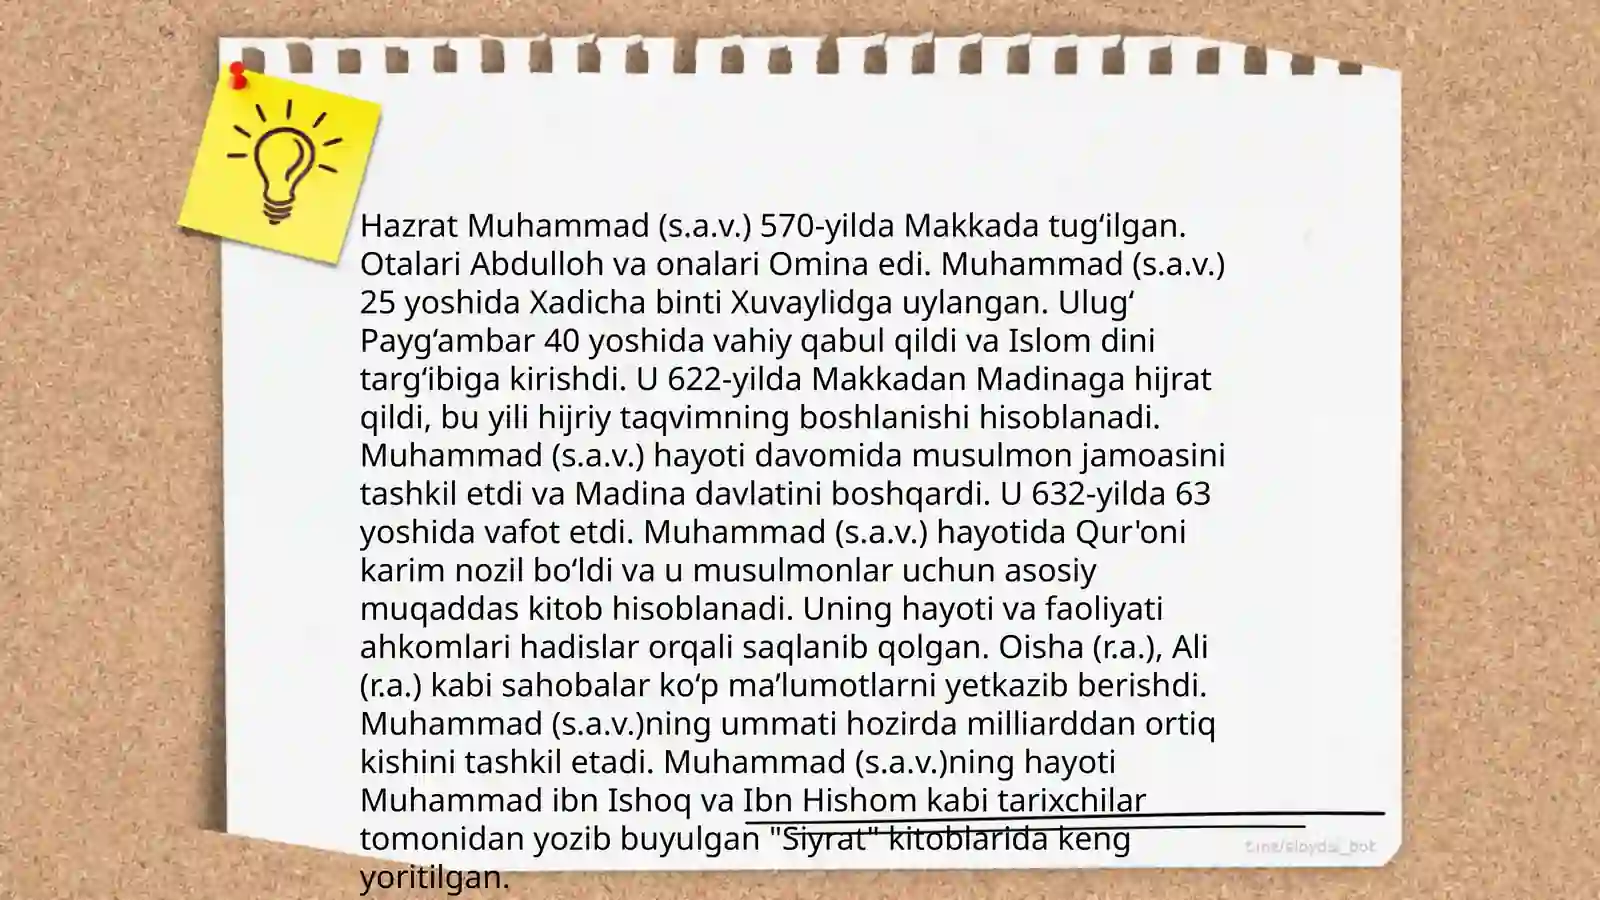 Hazrat Muhammad (s.a.v.) 570-yilda Makkada tug‘ilgan.
Otalari Abdulloh va onalari Omina edi. Muhammad (s.a.v.)
25 yoshida Xadicha binti Xuvaylidga uylangan. Ulug‘
Payg‘ambar 40 yoshida vahiy qabul qildi va Islom dini
targ‘ibiga kirishdi. U 622-yilda Makkadan Madinaga hijrat
qildi, bu yili hijriy taqvimning boshlanishi hisoblanadi.
Muhammad (s.a.v.) hayoti davomida musulmon jamoasini
tashkil etdi va Madina davlatini boshqardi. U 632-yilda 63
yoshida vafot etdi. Muhammad (s.a.v.) hayotida Qur'oni
karim nozil bo‘ldi va u musulmonlar uchun asosiy
muqaddas kitob hisoblanadi. Uning hayoti va faoliyati
ahkomlari hadislar orqali saqlanib qolgan. Oisha (r.a.), Ali
(r.a.) kabi sahobalar ko‘p ma’lumotlarni yetkazib berishdi.
Muhammad (s.a.v.)ning ummati hozirda milliarddan ortiq
kishini tashkil etadi. Muhammad (s.a.v.)ning hayoti
Muhammad ibn Ishoq va Ibn Hishom kabi tarixchilar
tomonidan yozib buyulgan "Siyrat" kitoblarida keng
yoritilgan.